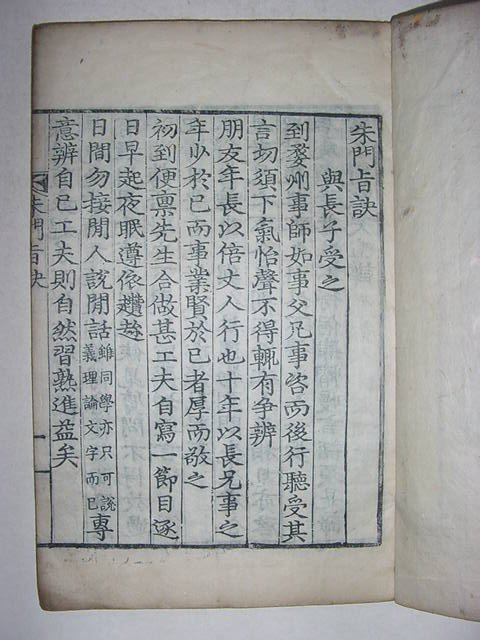 朱門旨訣
與長子受之
到婺州事師如事父凡事咨而後行聽受其
言切須下氣怡聲不得輒有爭辨
朋友年長以倍丈人行也十年以長兄事之
年少於己而事業賢於己者厚而敬之
初到便稟先生合做甚工夫自寫一節目逐
日早起夜眠遵依趲趁
日間勿接閒人說閒話雖同學亦只可說義理論文字而已專
意辨自己工夫則自然習熟進益矣
朱門旨訣 一